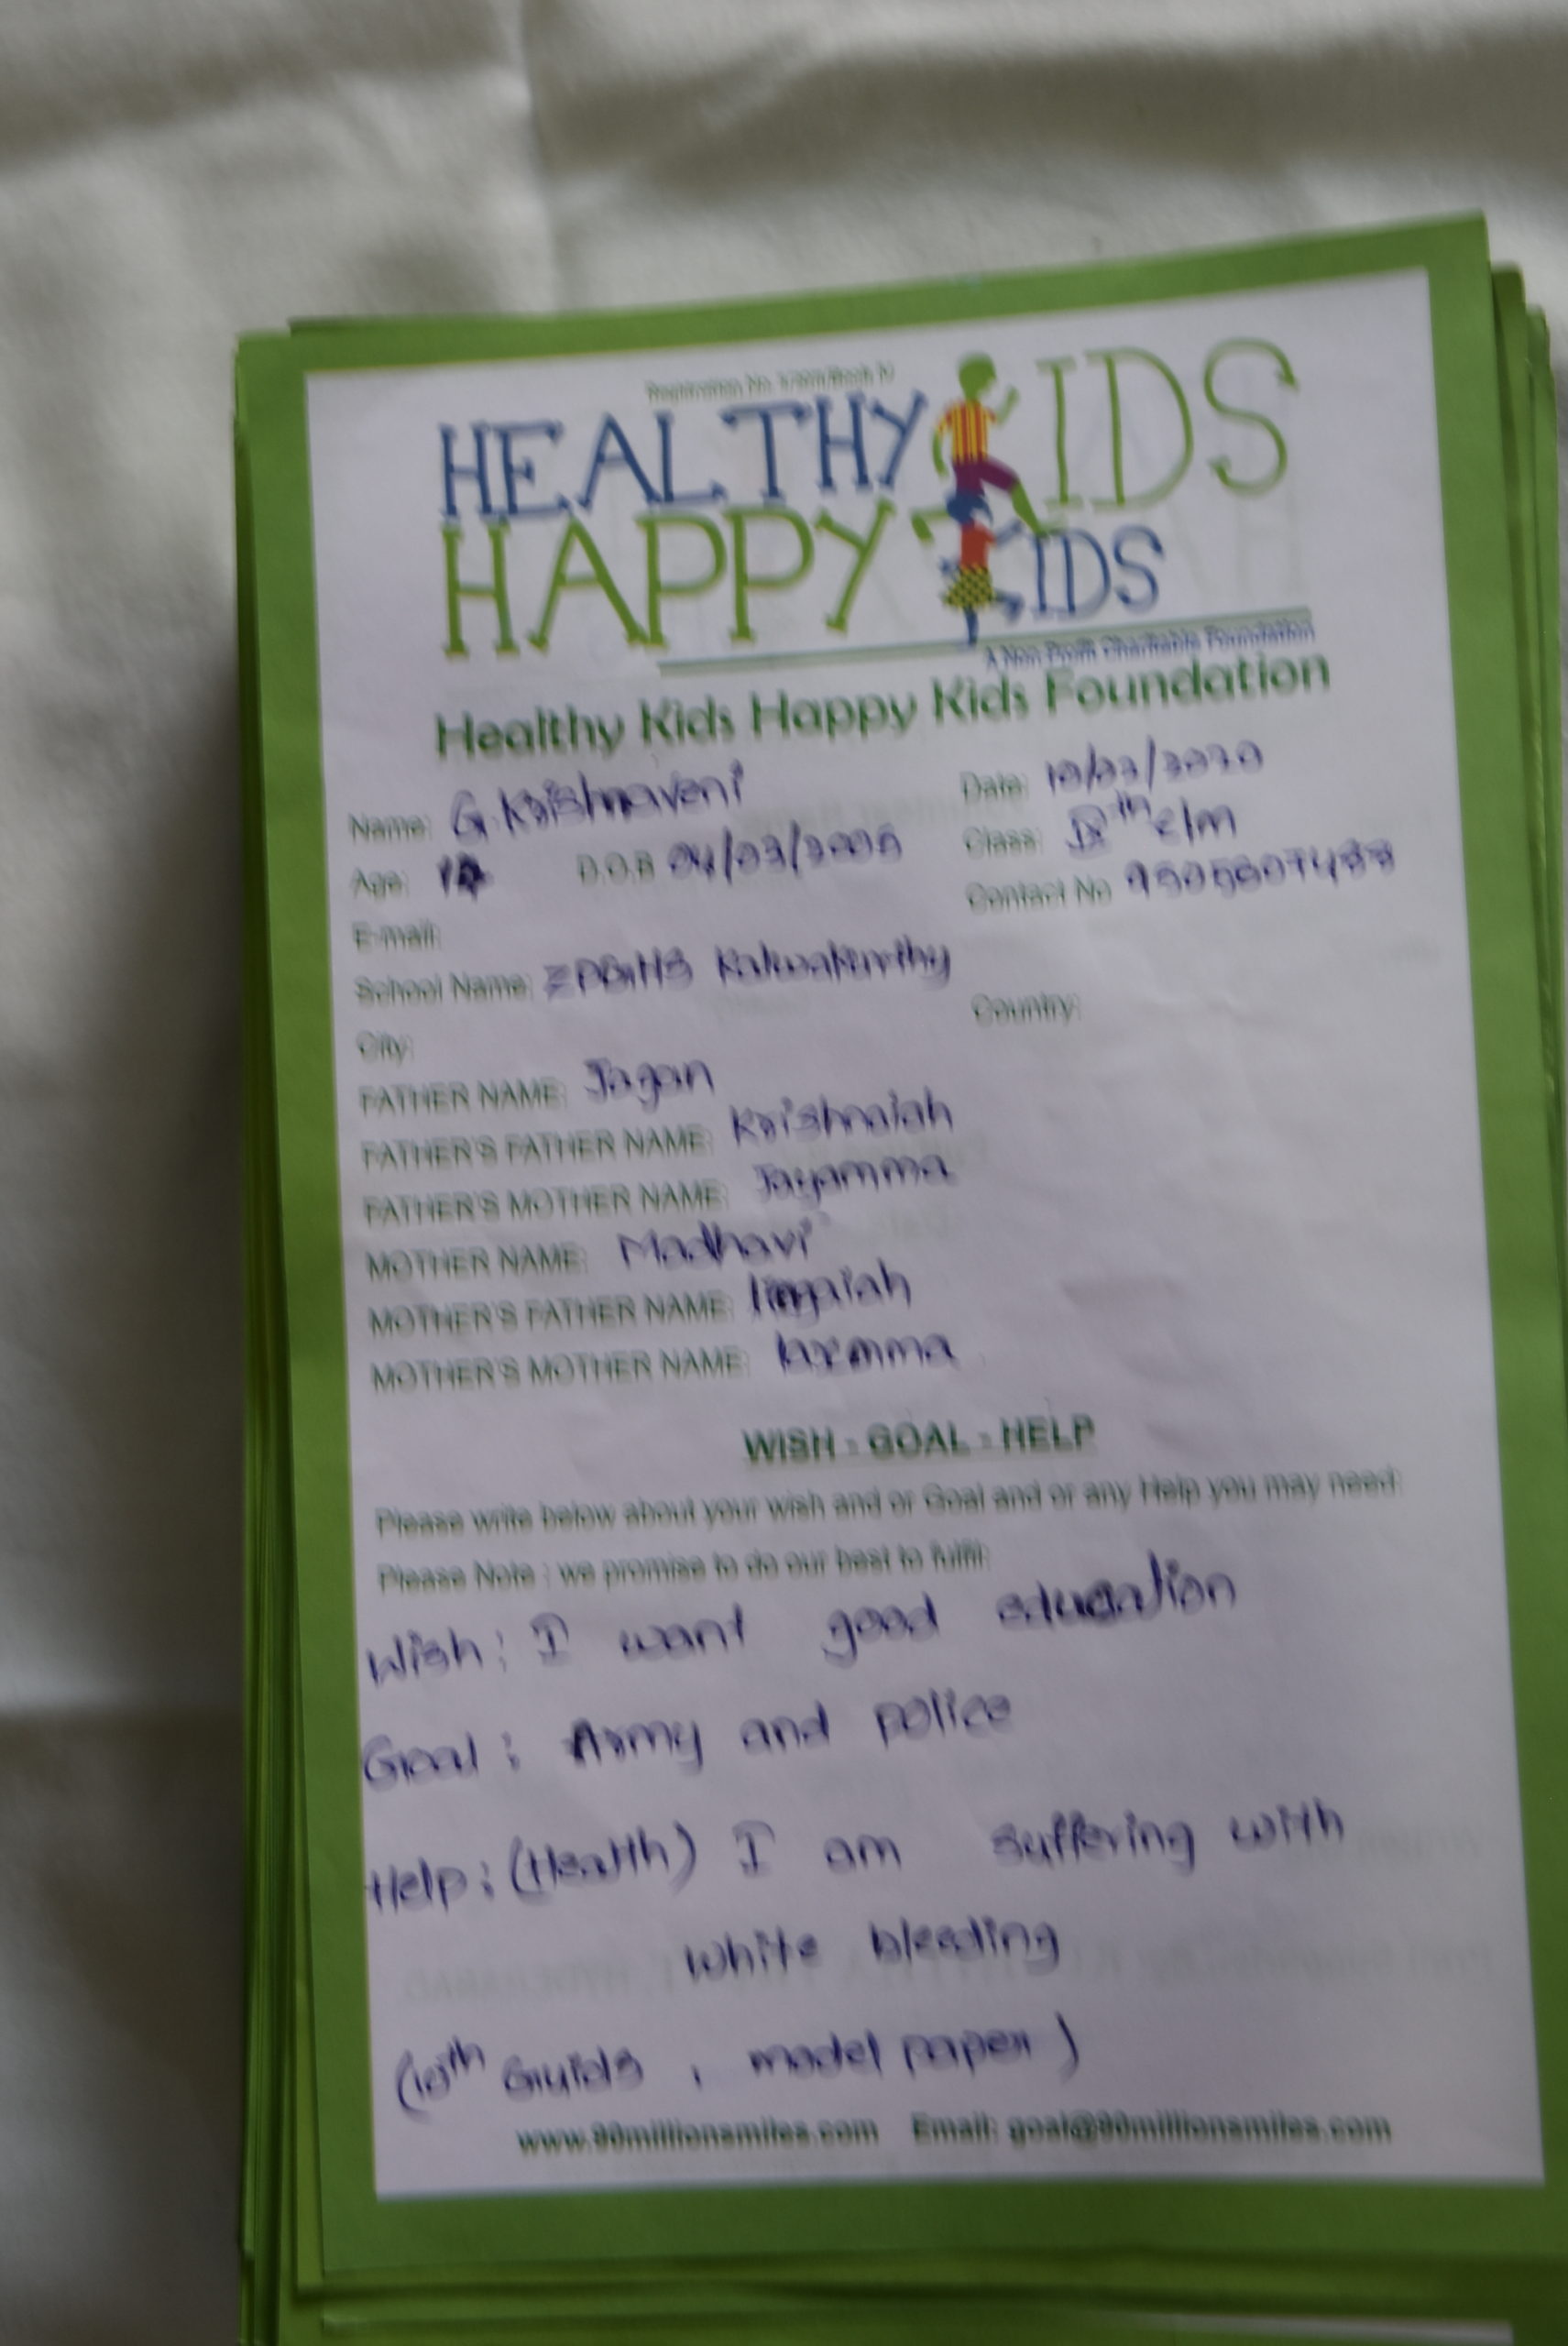 HEALTHY KIDS
HAPPY KIDS
A Non Profit Charitable Foundation
Healthy Kids Happy Kids Foundation
Name: G. Krishnaveni
Date:
Age:
D.O.B
Class: IXth E/M
E-mail:
Contact No
School Name: ZPGHS Kalwakurthy
City:
Country:
FATHER NAME: Jagan
FATHER'S FATHER NAME: Krishnaiah
FATHER'S MOTHER NAME: Jayamma
MOTHER NAME: Madhavi
MOTHER'S FATHER NAME: lingaiah
MOTHER'S MOTHER NAME:
WISH - GOAL - HELP
Please write below about your wish and or Goal and or any Help you may need:
Please Note : we promise to do our best to fulfil:
Wish: I want good education
Goal: Army and police
Help: (Health) I am suffering with
white bleeding
(10th Guids, model paper)
www.90millionsmiles.com Email: goal@90millionsmiles.com